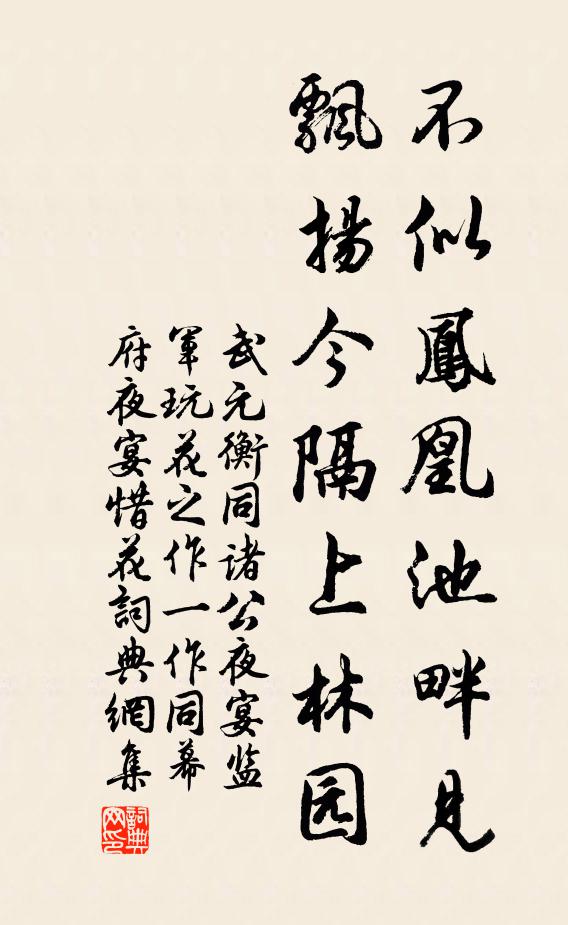 不似鳳凰池畔見
飄揚今隔上林园
武元衡同诸公夜宴监
軍玩花之作一作同幕
府夜宴惜花詞典網集
詞典
网印